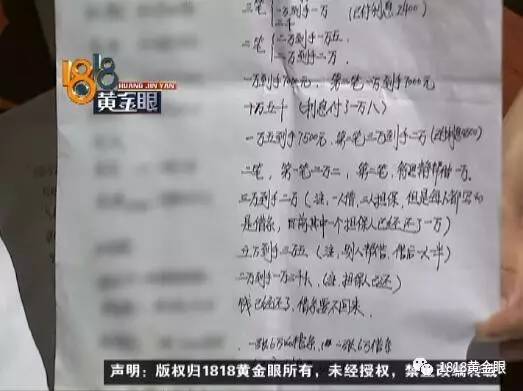 三笔 一万到手一万 (已付利息2400)
二千
二笔 二万到手一万五
三万到手二万
1818
HUANG JIN YAN
黄金眼
一万到手7000元，第二笔一万到手7000元
十万五千 (利息付了一万八)
一万五到手7500元，第二笔三万到手二万
二笔，第一笔二万二，第二笔，
三万到手二万 (注，一人借，三人担保，但是每人都写的
是借条，目前其中一个担保人已经还了一万)
五万到手三万五 (注，别人帮借，借后一人一半)
二万到手一万二千 (注，担保人已还)
钱已经还了，借条要不回来
一张6万借条，一张6万借条
声明：版权归1818黄金眼所有，未经授权，禁止改编转载
1818黄金眼